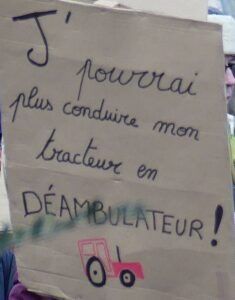 J' pourrai
plus conduire mon
tracteur en
DÉAMBULATEUR !